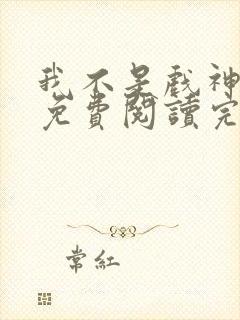 我不是戲神
免費閱讀完
常紅